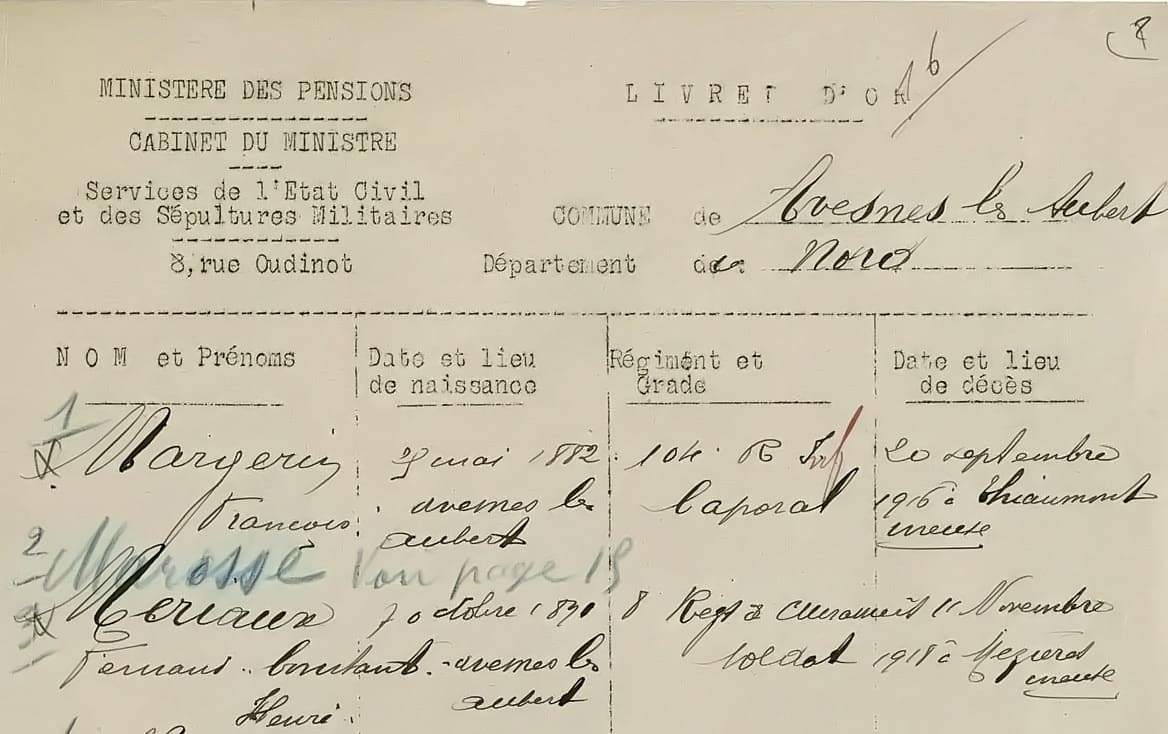 8
6
MINISTERE DES PENSIONS
LIVRET D'OR
CABINET DU MINISTRE
Services de l'Etat Civil
et des Sépultures Militaires
8, rue Oudinot
COMMUNE de Avesnes les Aubert
Département de Nord
NOM et Prénoms
Date et lieu
de naissance
Régiment et
Grade
Date et lieu
de décès
1
Margerin
François
mai 1882
avesnes les
aubert
104 R Inf
Caporal
20 septembre
1916 à Thiaumont
meuse
2 Marossé Voir page 15
3
Meriaux
Fernand Constant
Henri
7 octobre 1890
avesnes les
aubert
8 Regt de Cuirassiers
soldat
11 Novembre
1918 à Mezières
meuse